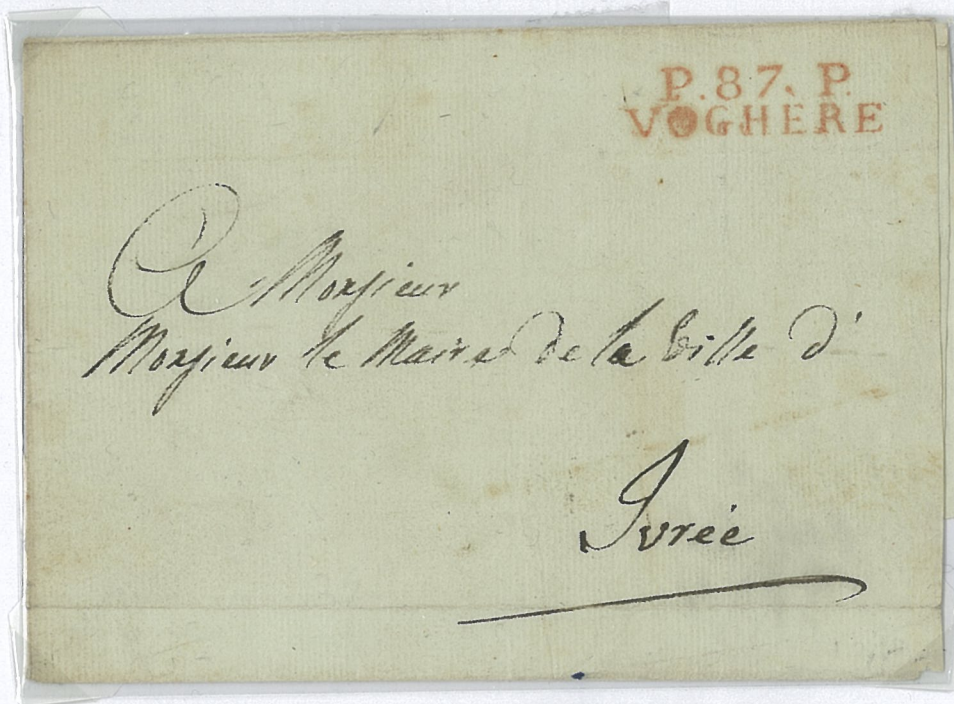 P.87.P.
VOGHERE
A Monsieur
Monsieur le Maire de la Ville d'
Ivrée